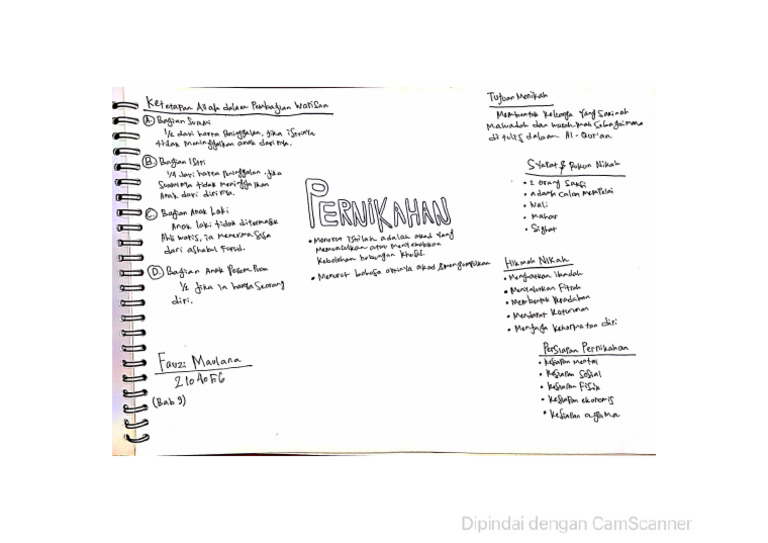 Ketetapan Allah dalam Pembagian Warisan
A. Bagian Suami
1/2 dari harta peninggalan, jika istrinya
tidak meninggalkan anak darinya.
B. Bagian Istri
1/4 dari harta peninggalan, jika
Suaminya tidak meninggalkan
Anak dari dirinya.
C. Bagian Anak Laki
Anak laki tidak ditermasuk
Ahli waris, ia menerima sisa
dari ashabul furud.
D. Bagian Anak Perempuan
1/2 jika ia hanya seorang
diri.
Fauzi Maulana
2104056
(Bab 9)
PERNIKAHAN
• Menurut istilah adalah akad yang
kebolehan hubungan
• Menurut bahasa artinya akad & mengumpulkan
Tujuan Menikah
Membentuk keluarga yang sakinah
Mawadah dan warahmah sebagaimana
ditulis dalam Al-Qur'an
Syarat & Rukun Nikah
• 2 orang saksi
• Adanya Calon Mempelai
• Wali
• Mahar
• Sighat
Hikmah Nikah
• Menguatkan ibadah
• Menyalurkan Fitrah
• Membentuk Peradaban
• Mendapat Keturunan
• Menjaga kehormatan diri
Persiapan Pernikahan
• Kesiapan mental
• Kesiapan Sosial
• Kesiapan Fisik
• Kesiapan ekonomis
• Kesiapan agama
Dipindai dengan CamScanner